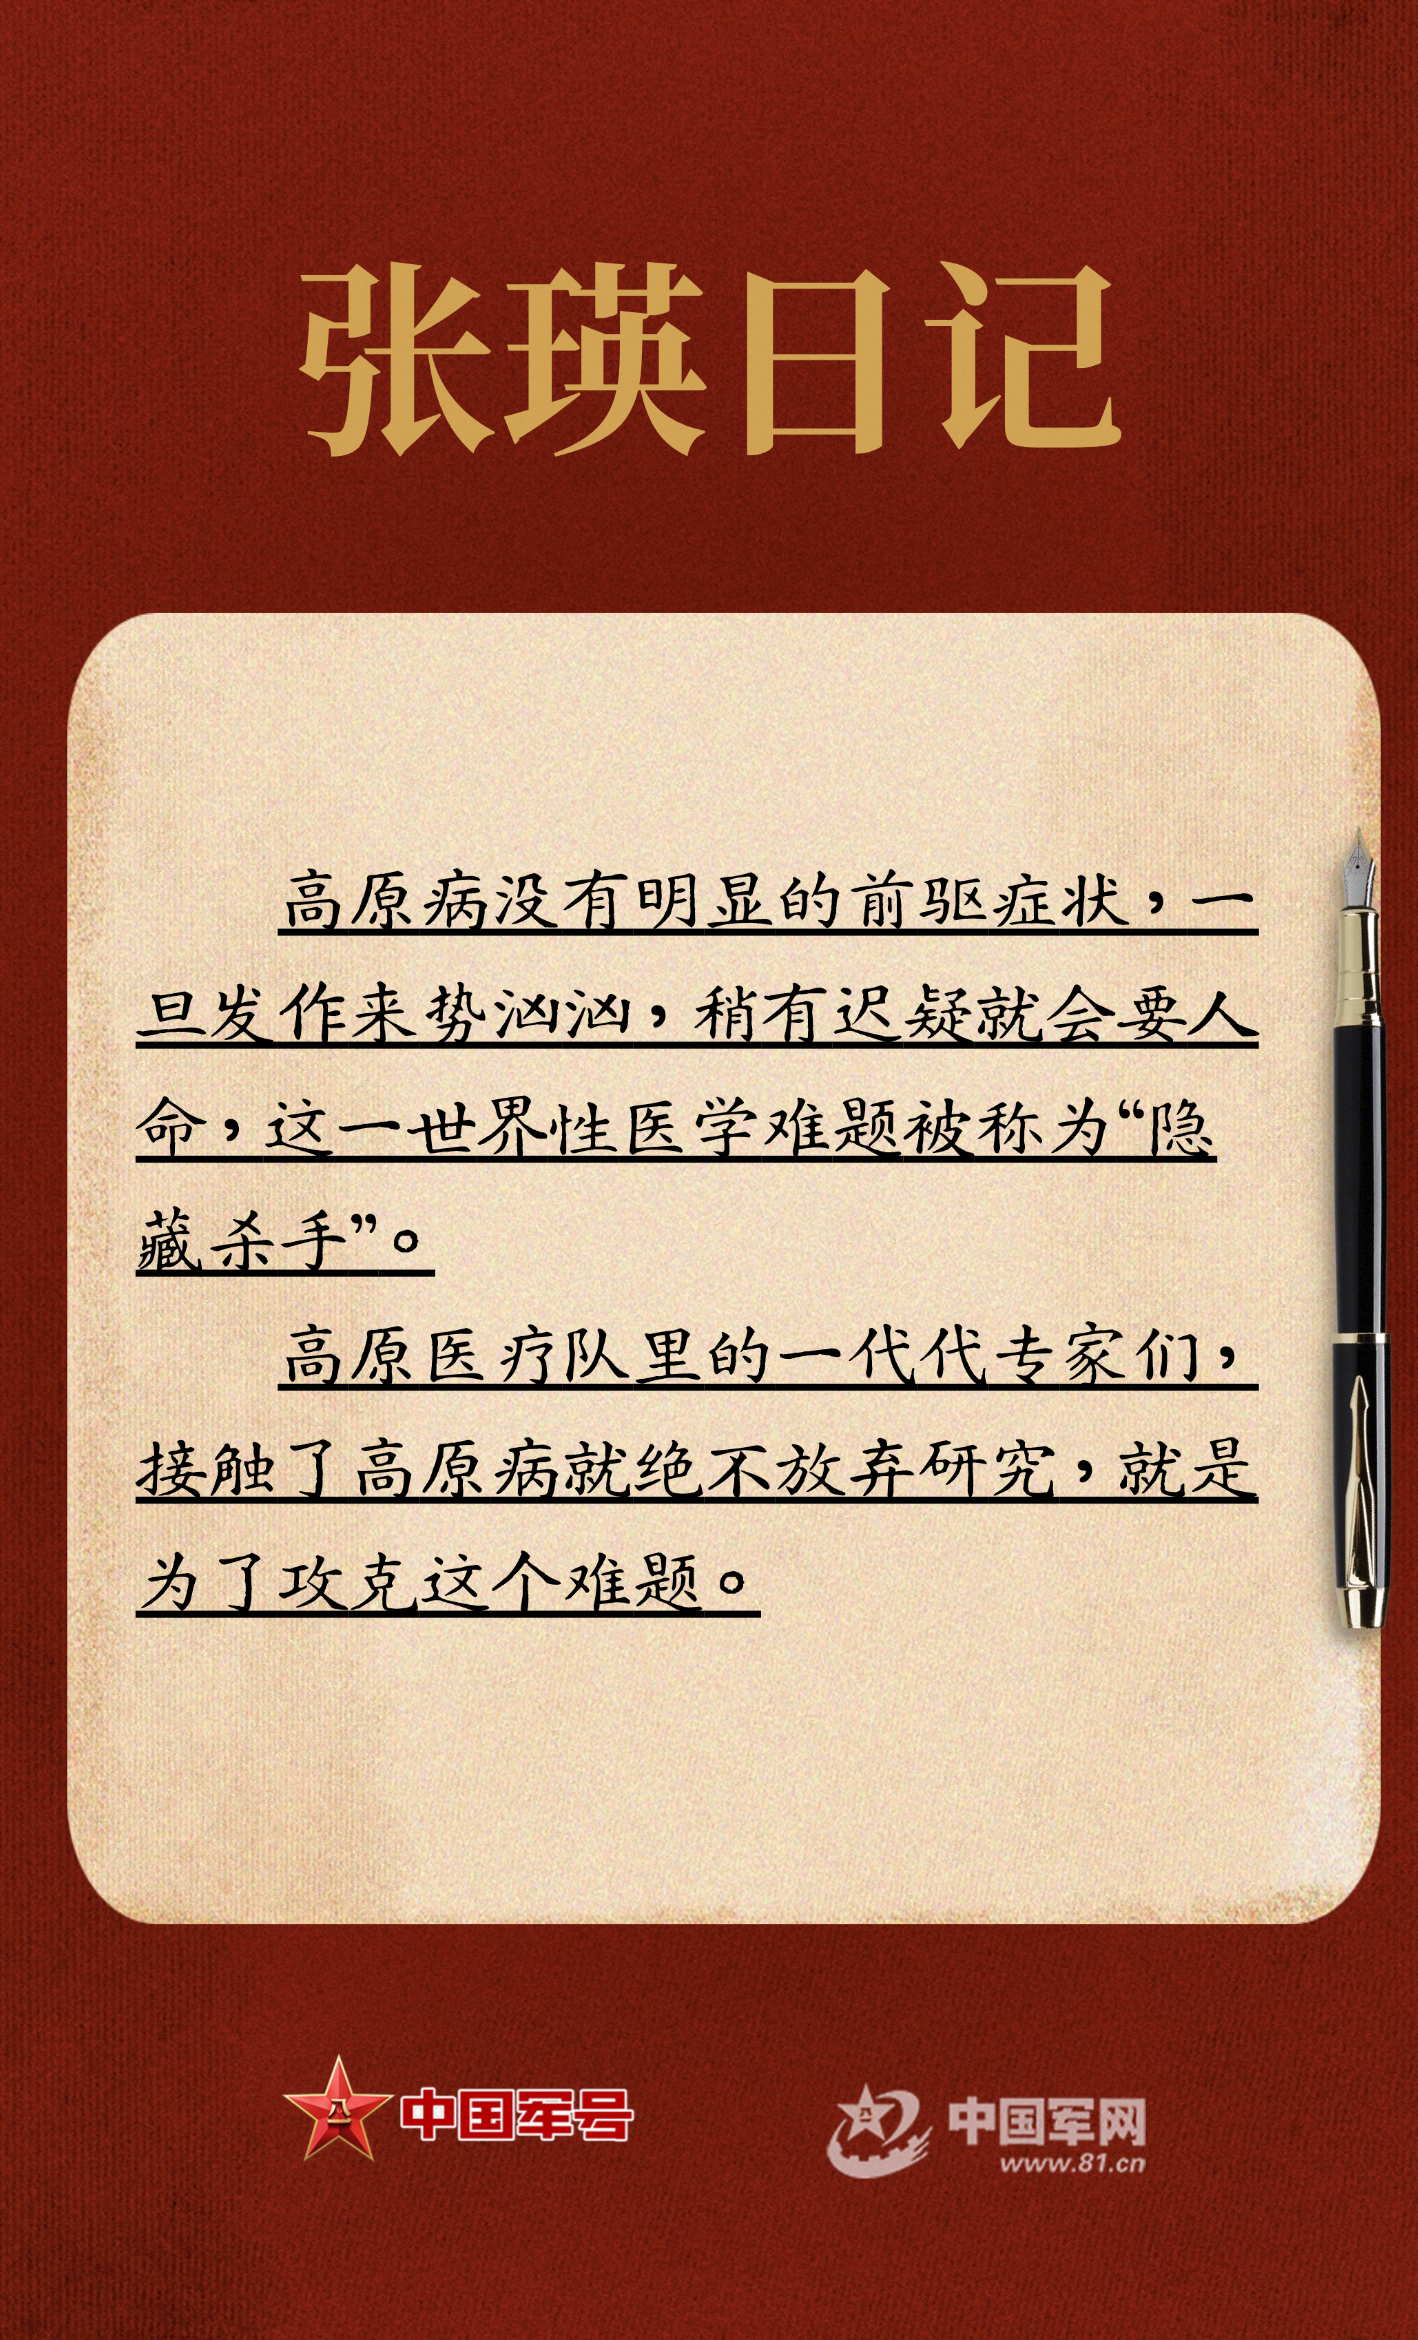 张瑛日记
高原病没有明显的前驱症状，一
旦发作来势汹汹，稍有迟疑就会要人
命，这一世界性医学难题被称为“隐
藏杀手”。
高原医疗队里的一代代专家们，
接触了高原病就绝不放弃研究，就是
为了攻克这个难题。
八一
中国军号
八一
中国军网
www.81.cn